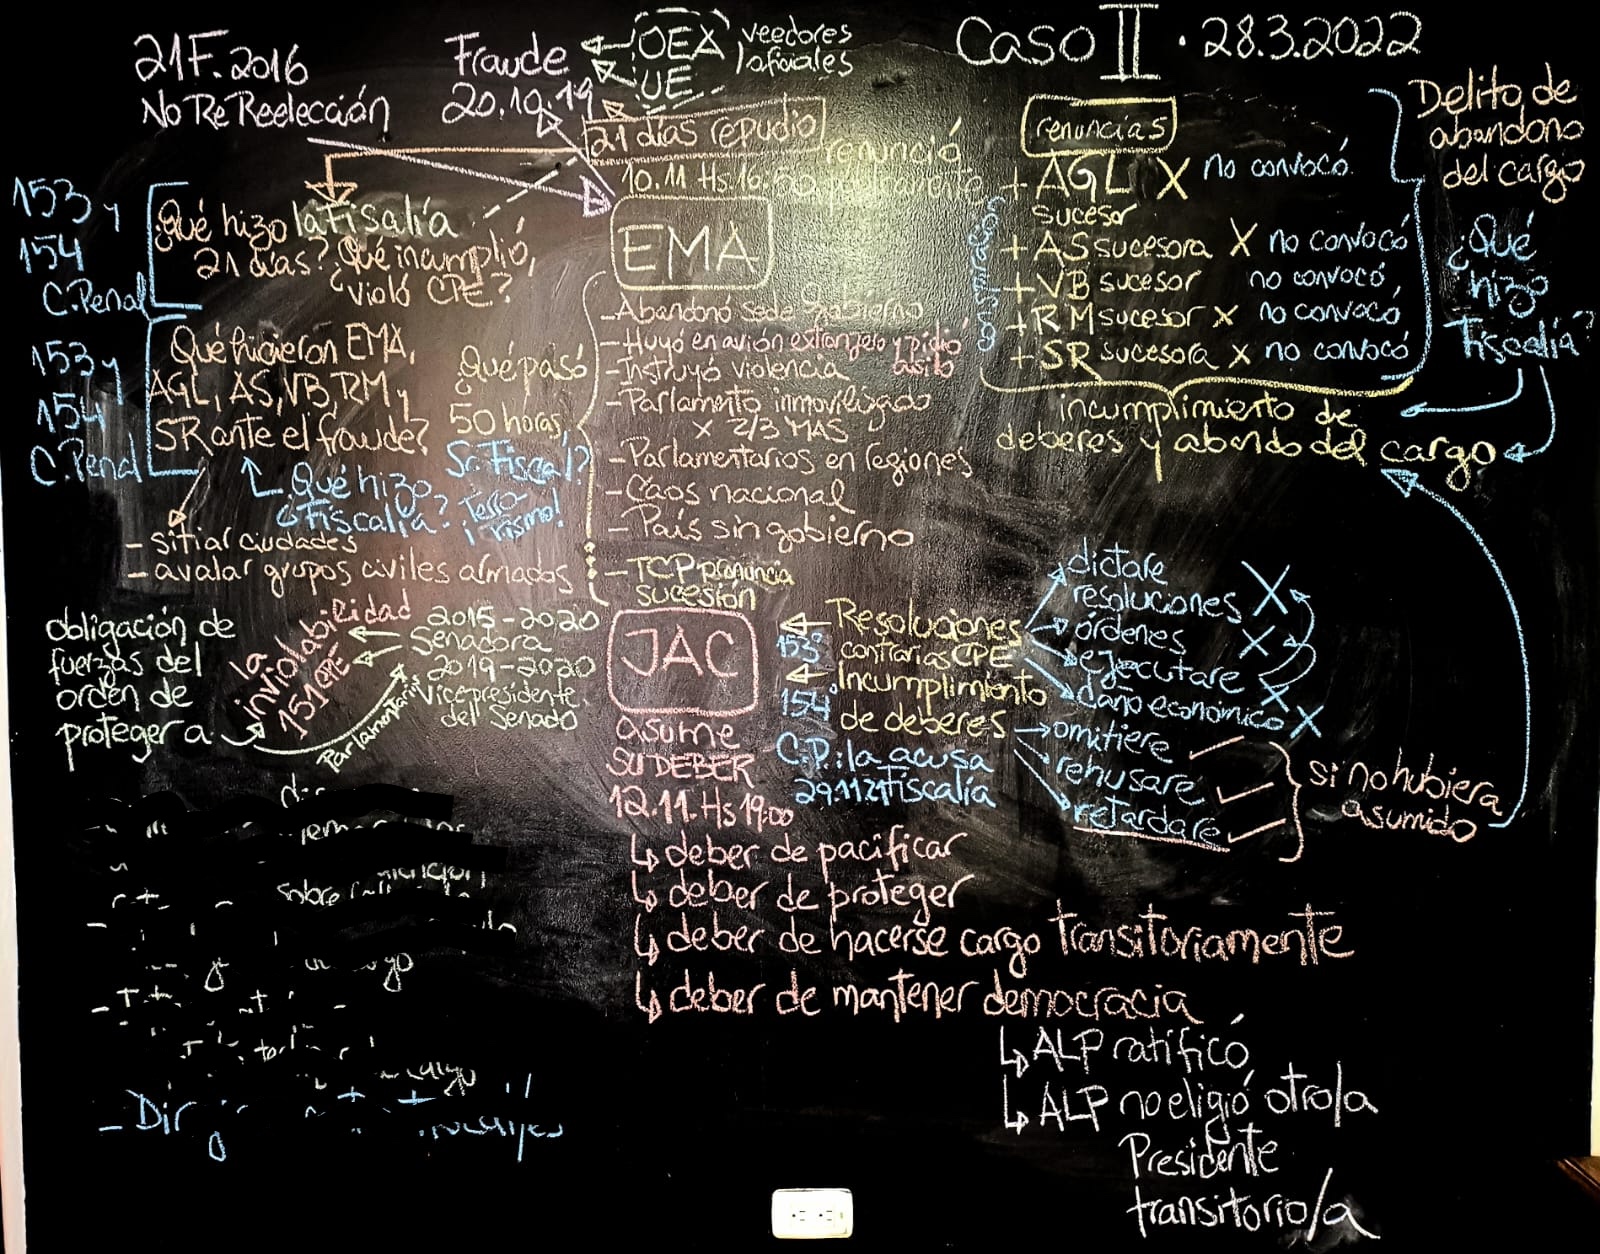 21F.2016
No Re Reelección
Fraude
20.10.19
OEA
UE
veedores
oficiales
Caso II · 28.3.2022
21 días repudio
renunció
10.11 Hs.16:50
EMA
- Abandonó sede gobierno
- Huyó en avión extranjero y pidió
asilo
- Instruyó violencia
- Parlamento inmovilizado
x 2/3 MAS
- Parlamentarios en regiones
- Caos nacional
- País sin gobierno
- TCP pronuncia
sucesión
153 y
154
C.Penal
¿Qué hizo la Fiscalía
21 días? ¿Qué incumplió,
violó CPE?
153 y
154
C.Penal
Qué hicieron EMA,
AGL, AS, VB, RM y
SR ante el fraude?
¿Qué pasó
50 horas,
Sr. Fiscal?
¿Qué hizo
Fiscalía?
¡Terro
rismo!
- sitiar ciudades
- avalar grupos civiles armados
obligación de
fuerzas del
orden de
proteger a
la
inviolabilidad
151 CPE
Parlamentaria
2015-2020
Senadora
2019-2020
Vicepresidente
del Senado
renuncias
+ AGL X no convocó
sucesor
+ AS sucesora X no convocó
+ VB sucesor no convocó,
+ RM sucesor x no convocó
+ SR sucesora x no convocó
incumplimiento de
deberes y abandono del cargo
Delito de
abandono
del cargo
¿Qué
hizo
Fiscalía?
JAC
asume
SU DEBER
12.11.Hs 19:00
↳ deber de pacificar
↳ deber de proteger
↳ deber de hacerse cargo Transitoriamente
↳ deber de mantener democracia
↳ ALP ratificó
↳ ALP no eligió otro/a
Presidente
transitorio/a
Resoluciones
153° contrarias CPE
Incumplimiento
154° de deberes
C.P.: la acusa
Fiscalía
dictare
resoluciones X
órdenes X
ejecutare X
daño económico X
omitiere
rehusare
retardare
si no hubiera
asumido